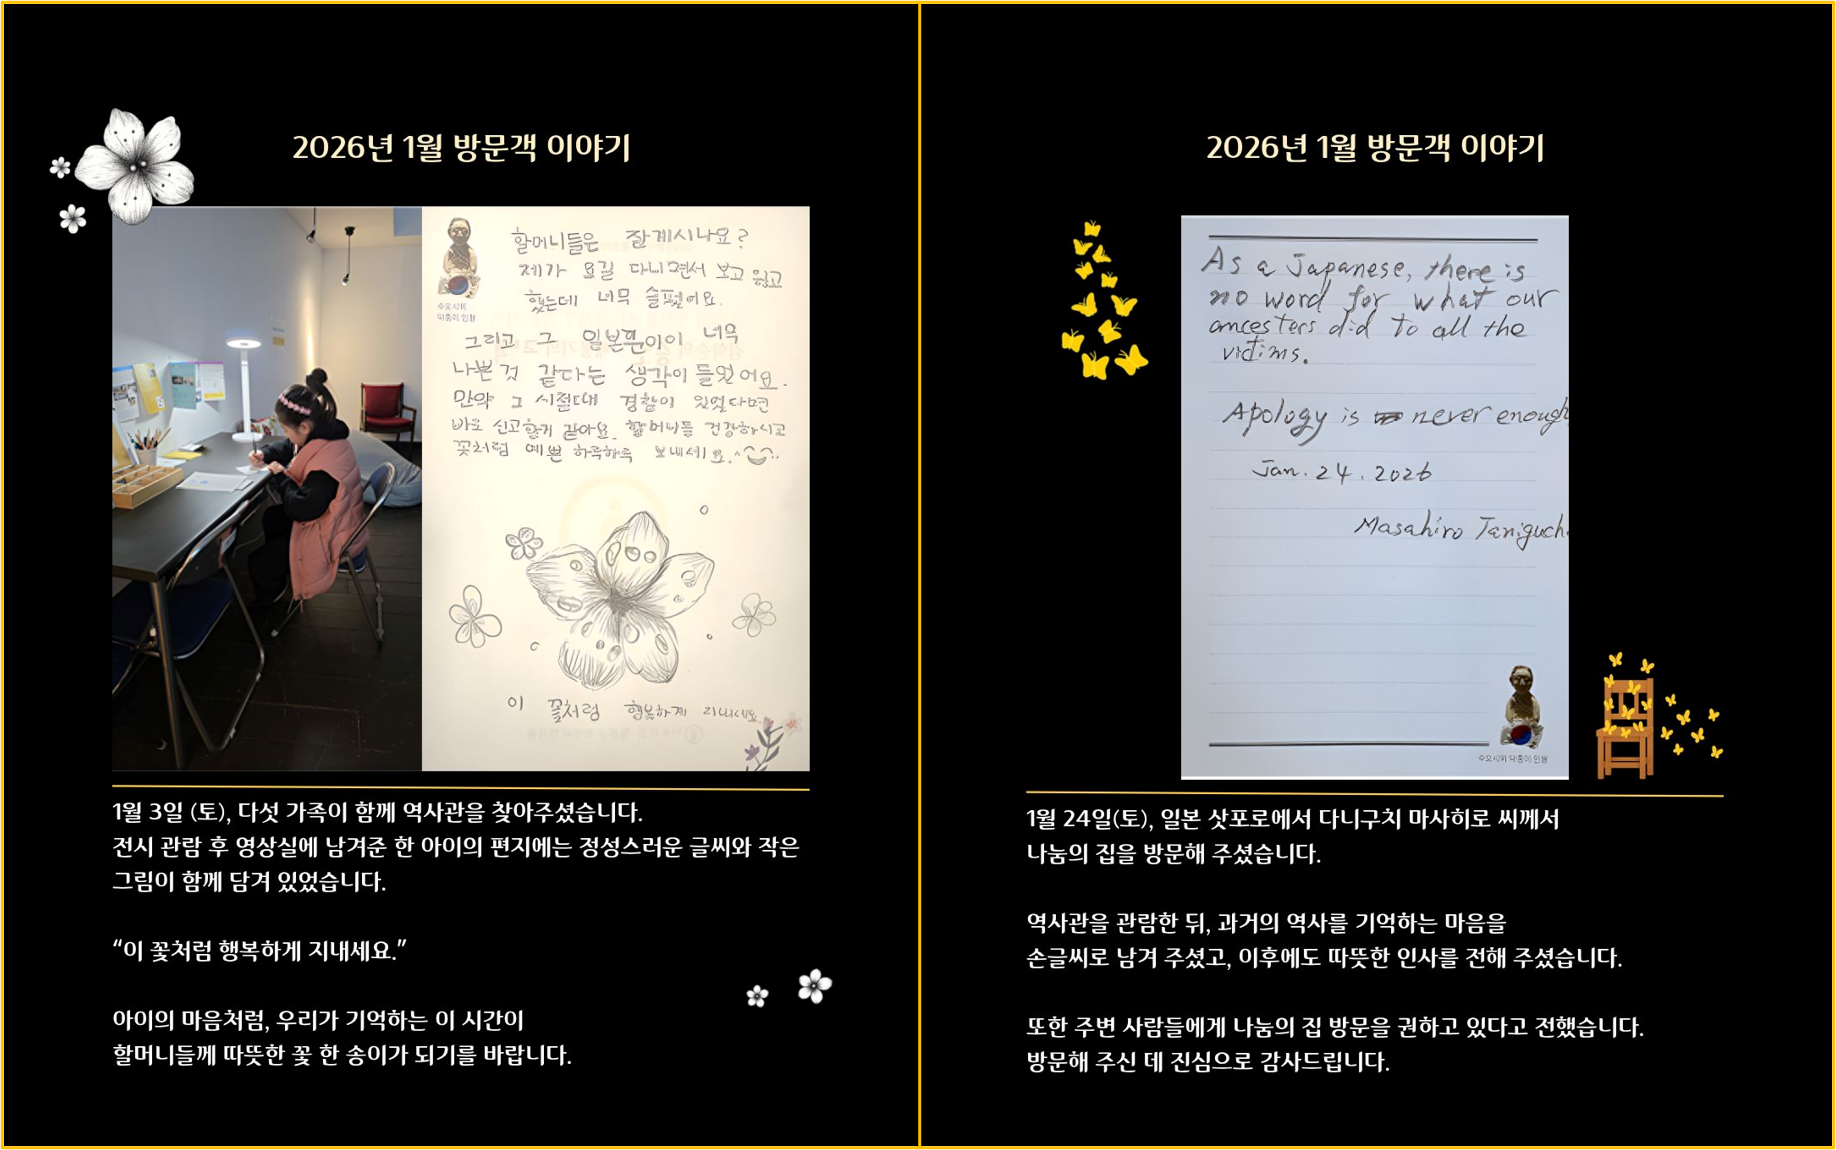 2026년 1월 방문객 이야기
할머니들은 잘계시나요?
제가 요길 다니면서 보고 읽고
했는데 너무 슬펐어요.
수요시위
막둥이 인형
그리고 그 일본군인이 너무
나쁜 것 같다는 생각이 들었어요.
만약 그 시절때 경찰이 있었다면
바로 신고할게 같아요. 할머니들 건강하시고
꽃처럼 예쁜 하루하루 보내세요.
이 꽃처럼 행복하게 지내세요.
1월 3일 (토), 다섯 가족이 함께 역사관을 찾아주셨습니다.
전시 관람 후 영상실에 남겨준 한 아이의 편지에는 정성스러운 글씨와 작은
그림이 함께 담겨 있었습니다.
“이 꽃처럼 행복하게 지내세요.”
아이의 마음처럼, 우리가 기억하는 이 시간이
할머니들께 따뜻한 꽃 한 송이가 되기를 바랍니다.
2026년 1월 방문객 이야기
As a Japanese, there is
no word for what our
ancesters did to all the
victims.
Apology is never enough
Jan. 24. 2026
Masahiro Taniguch
수요시위 막둥이 인형
1월 24일(토), 일본 삿포로에서 다니구치 마사히로 씨께서
나눔의 집을 방문해 주셨습니다.
역사관을 관람한 뒤, 과거의 역사를 기억하는 마음을
손글씨로 남겨 주셨고, 이후에도 따뜻한 인사를 전해 주셨습니다.
또한 주변 사람들에게 나눔의 집 방문을 권하고 있다고 전했습니다.
방문해 주신 데 진심으로 감사드립니다.